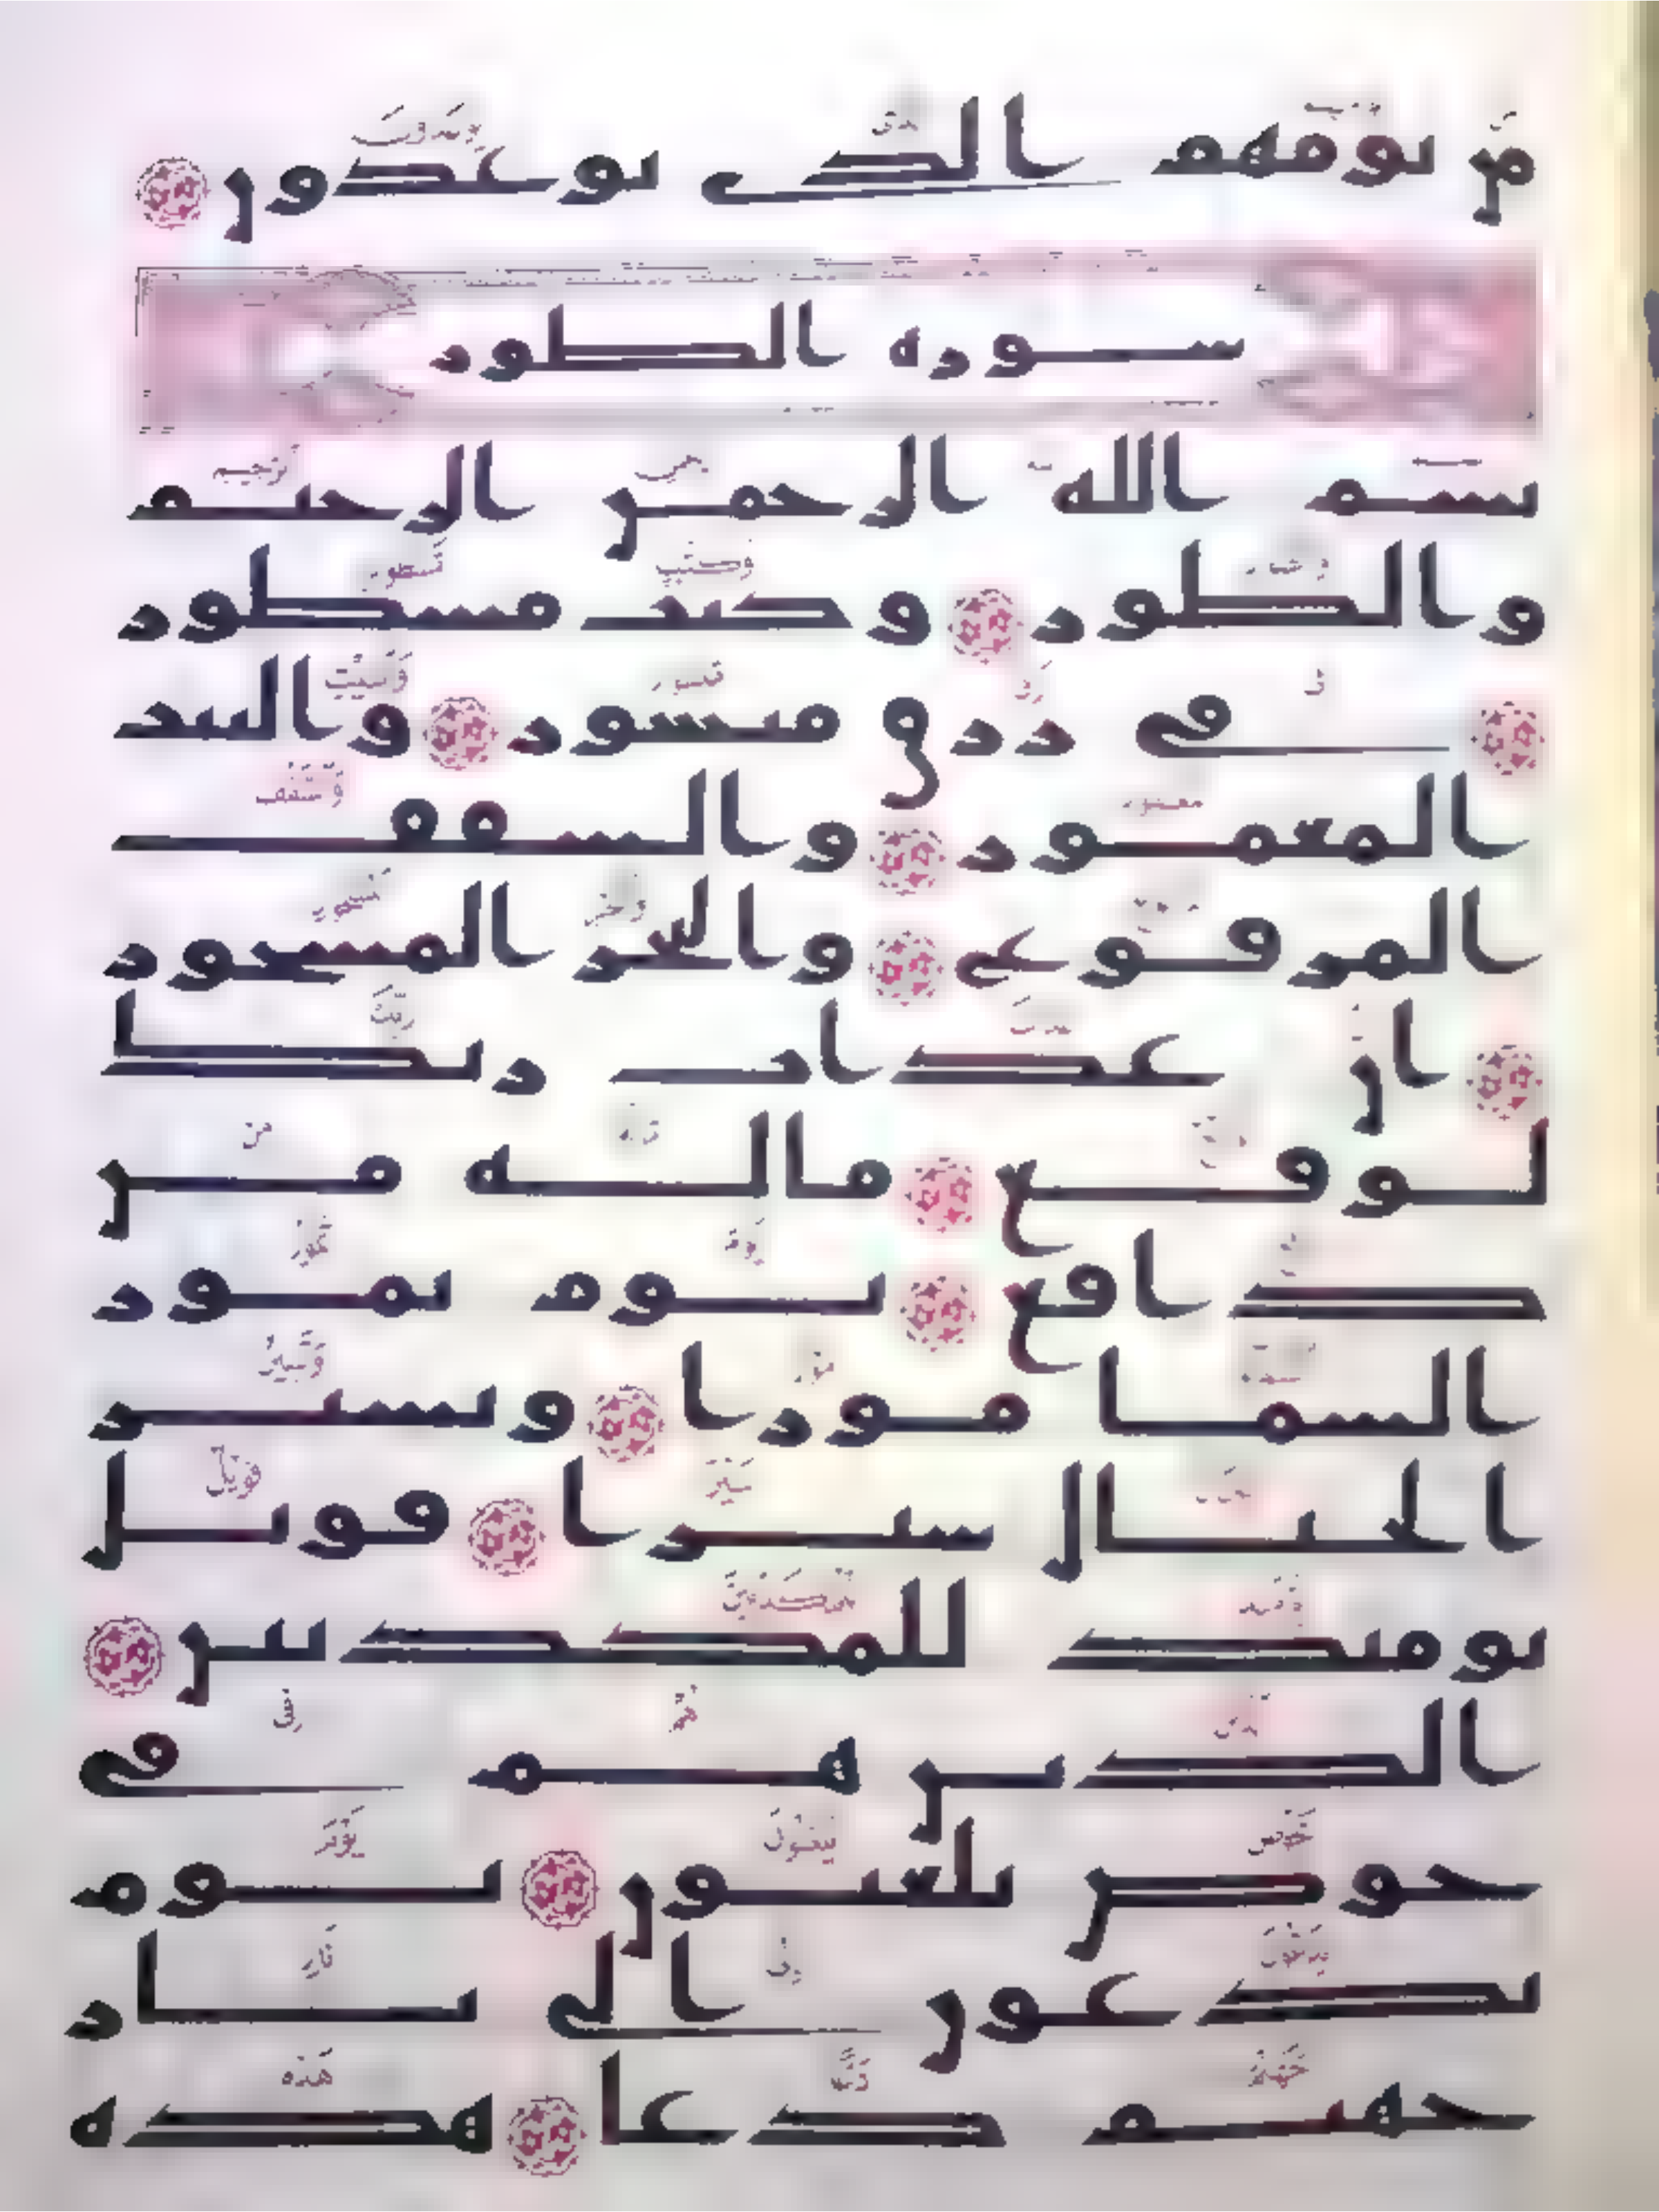 من يومهم الذي يوعدون
سورة الطور
بسم الله الرحمن الرحيم
والطور وكتب مسطور
في رق منشور والبيت
المعمور والسقف
المرفوع والبحر المسجور
ان عذاب ربك
لوقع ماله من
دافع يوم تمور
السما مورا وتسير
الجبال سيرا فويل
يومئذ للمكذبين
الذين هم في
خوض يلعبون يوم
يدعون الى نار
جهنم دعا هذه